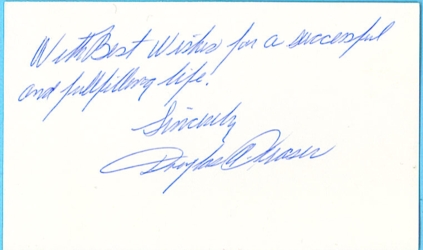 With Best Wishes for a successful
and fullfilling life.
Sincerely
Douglas A Fraser